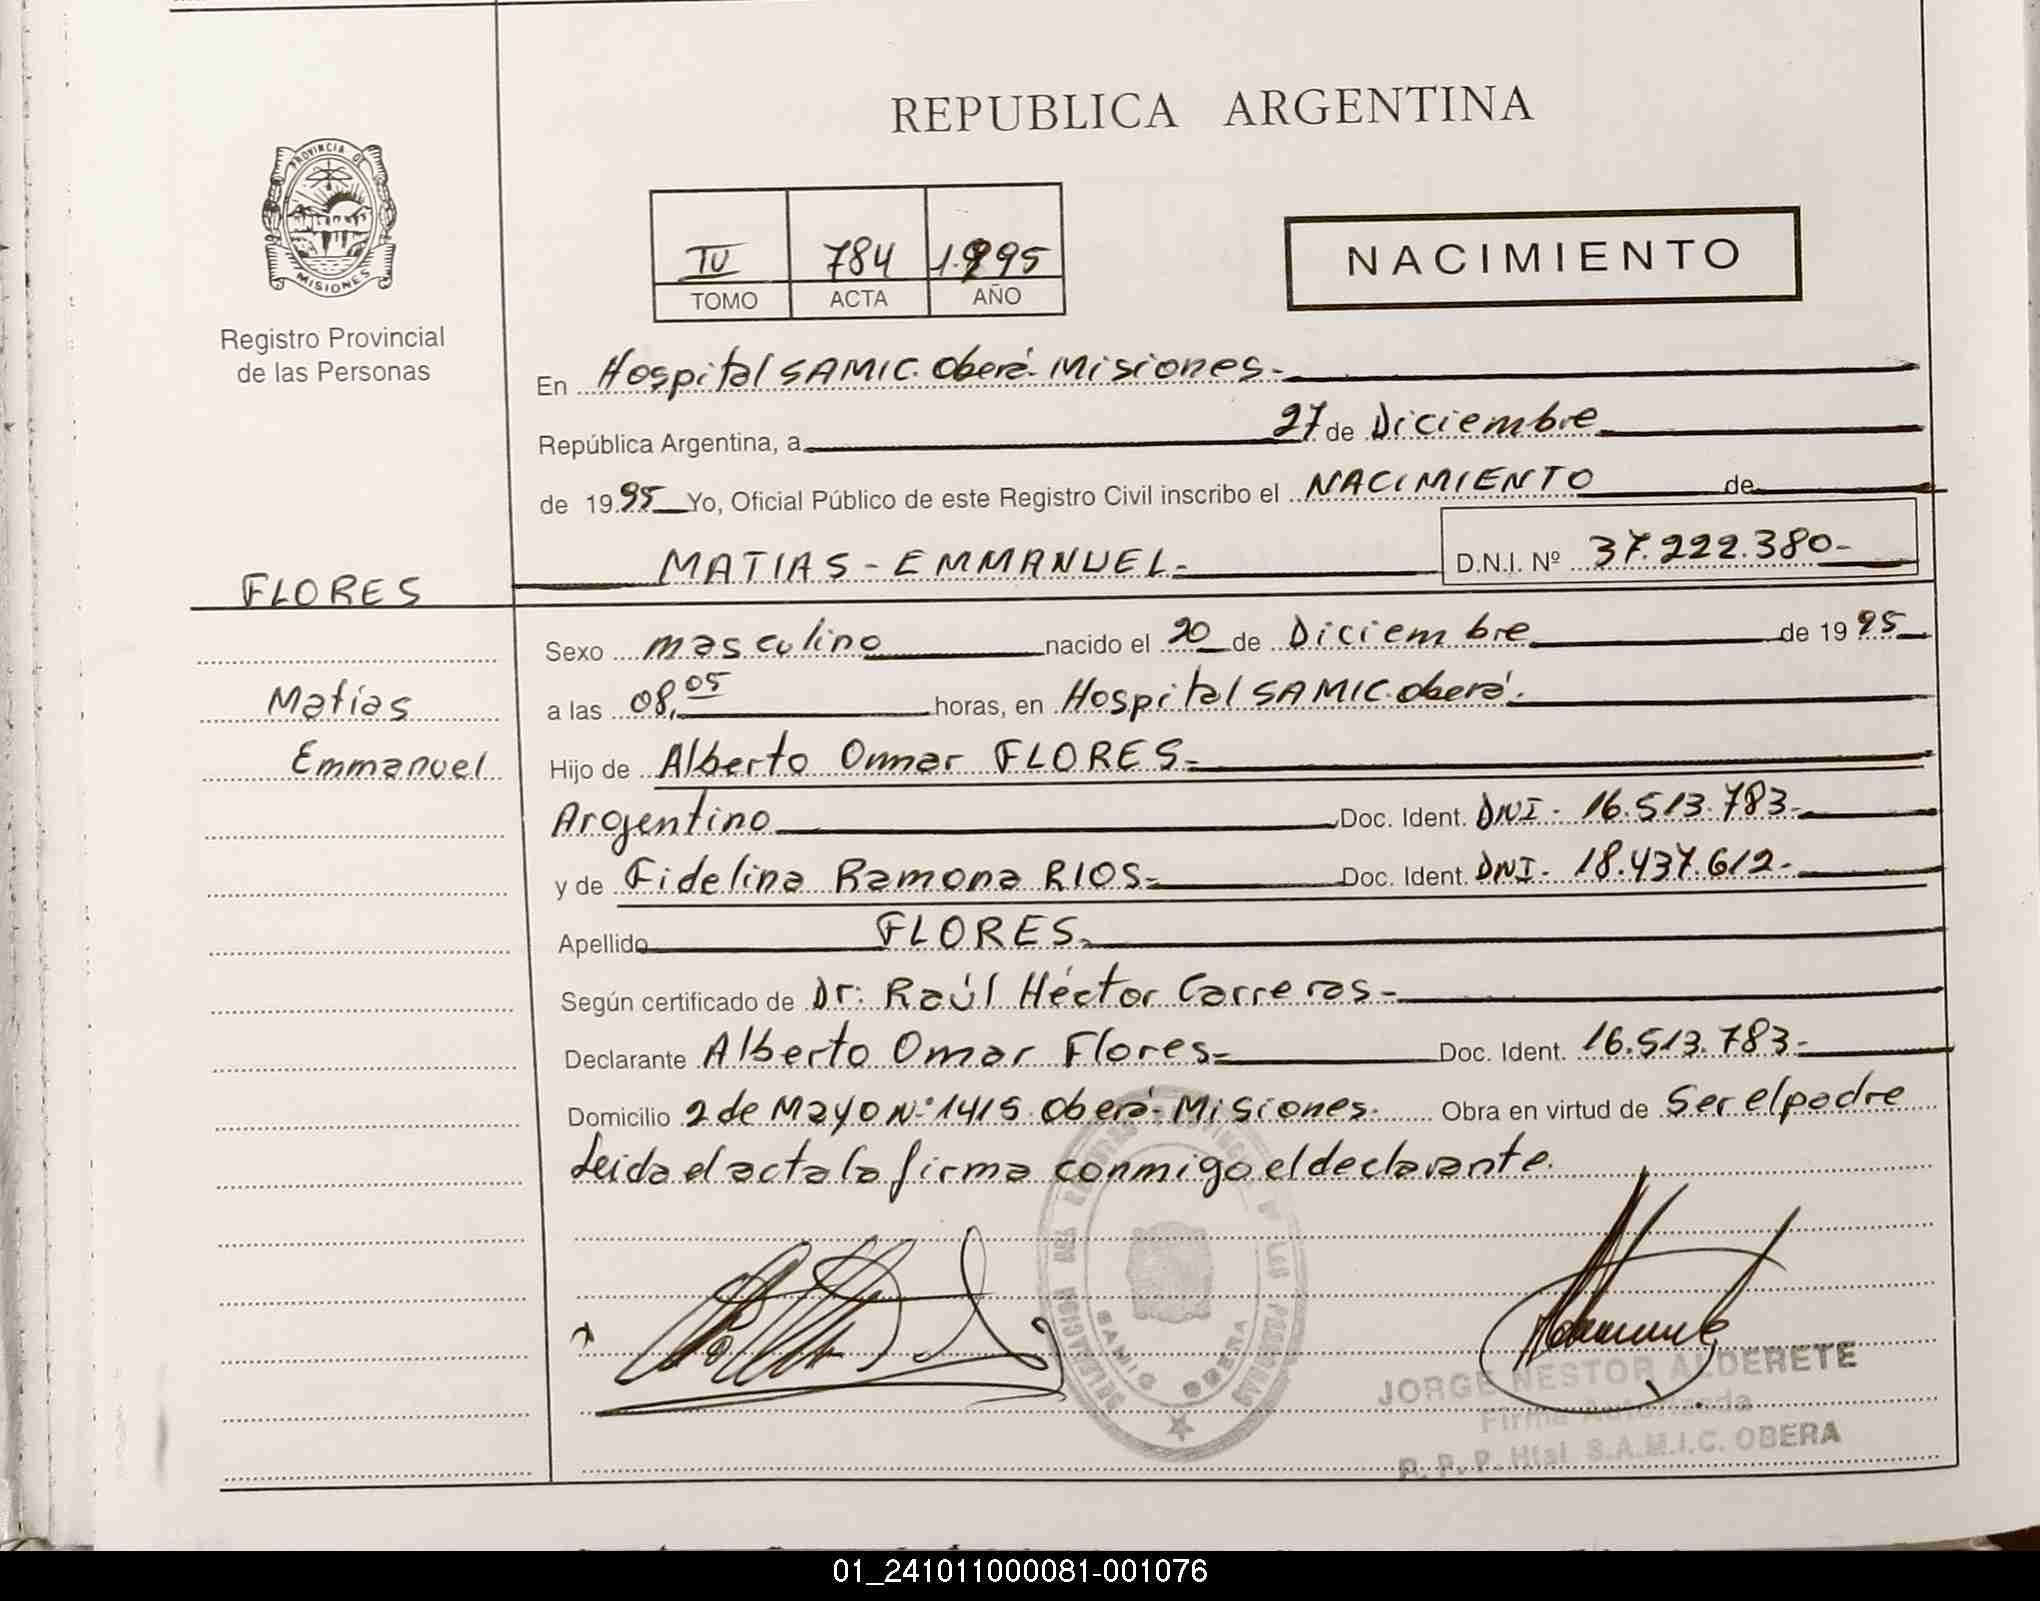 REPUBLICA ARGENTINA
PROVINCIA DE MISIONES
Registro Provincial
de las Personas
IV 784 1.995
TOMO ACTA AÑO
NACIMIENTO
En Hospital SAMIC. Oberá. Misiones.-
República Argentina, a 27 de Diciembre
de 1995 Yo, Oficial Público de este Registro Civil inscribo el NACIMIENTO de
MATIAS - EMMANUEL- D.N.I. Nº 37.222.380-
FLORES
Matías
Emmanuel
Sexo masculino nacido el 20 de Diciembre de 1995
a las 08,05 horas, en Hospital SAMIC. Oberá.
Hijo de Alberto Omar FLORES-
Argentino Doc. Ident. DNI - 16.513.783-
y de Fidelina Ramona RIOS- Doc. Ident. DNI - 18.437.612-
Apellido FLORES-
Según certificado de Dr: Raúl Héctor Carreras-
Declarante Alberto Omar Flores- Doc. Ident. 16.513.783-
Domicilio 2 de Mayo N° 1415. Oberá- Misiones. Obra en virtud de Ser el padre
Leida el acta la firma conmigo el declarante.
SAMIC OBERA
JORGE NESTOR ALDERETE
Firma Autorizada
R. P. P. Htal S.A.M.I.C. OBERA
01_241011000081-001076